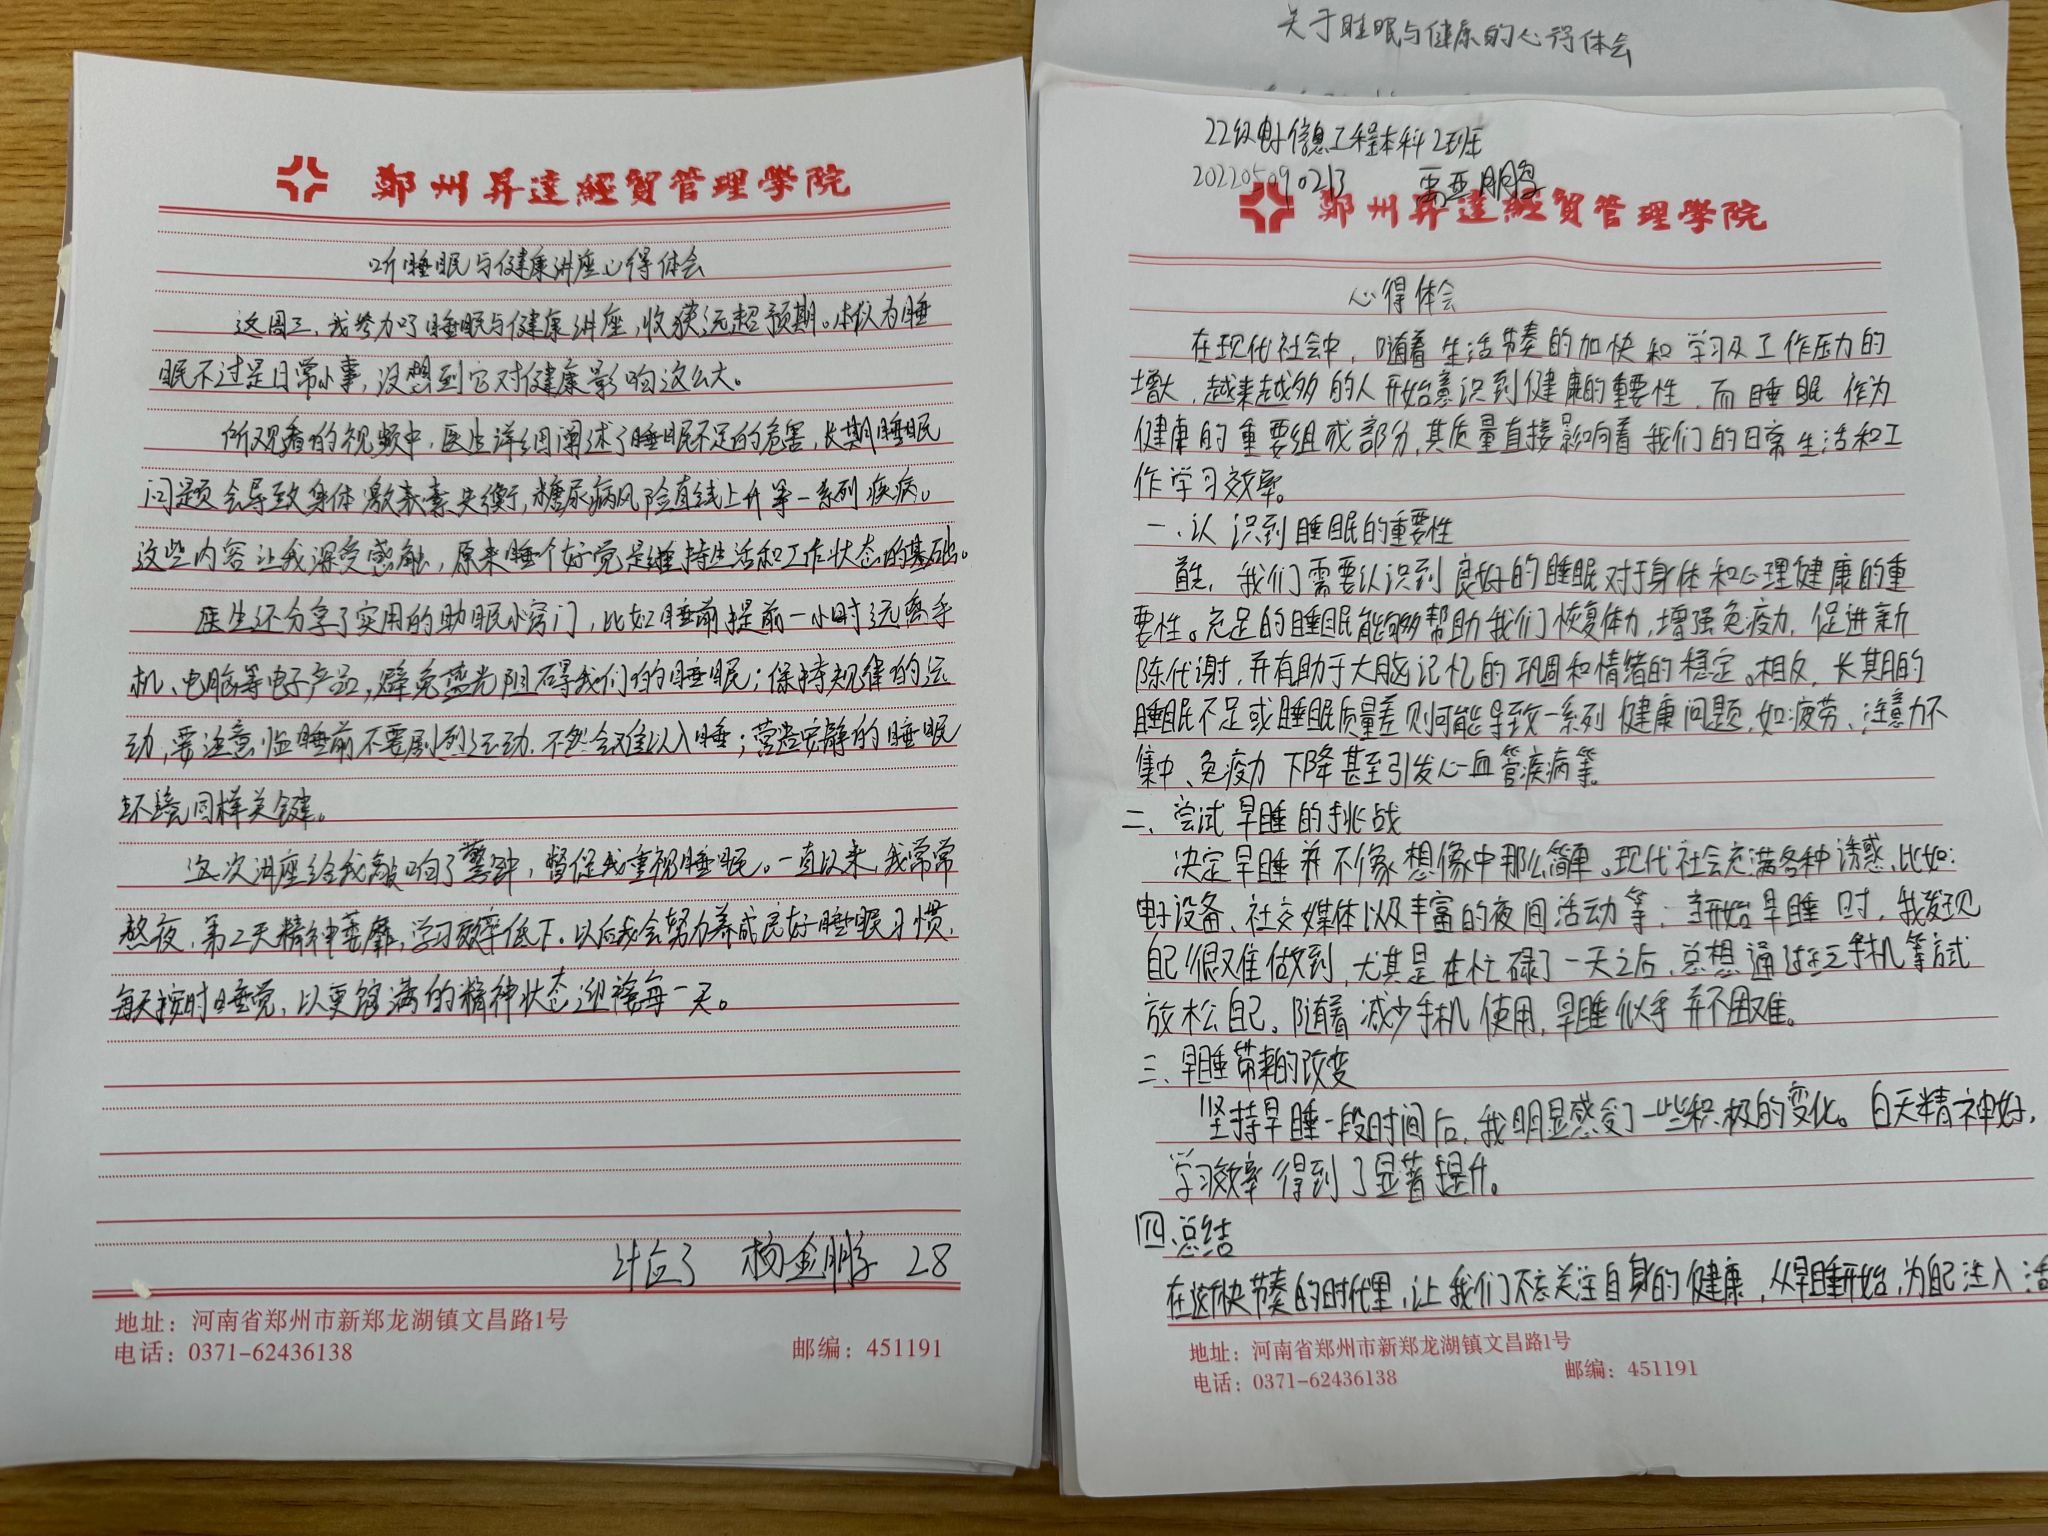 鄭州昇達經貿管理學院
听睡眠与健康讲座心得体会
这周三,我参加了睡眠与健康讲座,收获远超预期。本以为睡
眠不过是日常小事,没想到它对健康影响这么大。
所观看的视频中,医生详细阐述了睡眠不足的危害,长期睡眠
问题会导致身体激素失衡,糖尿病风险直线上升等一系列疾病。
这些内容让我深受感触,原来睡个好觉是维持生活和工作状态的基础。
医生还分享了实用的助眠小窍门,比如睡前提前一小时远离手
机、电脑等电子产品,避免蓝光阻碍我们的睡眠;保持规律的运
动,要注意,临睡前不要剧烈运动,不然会难以入睡;营造安静的睡眠
环境同样关键。
这次讲座给我敲响了警钟,督促我重视睡眠。一直以来,我常常
熬夜,第2天精神萎靡,学习效率低下。以后我会努力养成良好睡眠习惯,
每天按时睡觉,以更饱满的精神状态迎接每一天。
计应3 杨金鹏 28
地址:河南省郑州市新郑龙湖镇文昌路1号
电话:0371-62436138 邮编:451191
关于睡眠与健康的心得体会
22级电子信息工程本科2班
202205090213 禹亚鹏
鄭州昇達經貿管理學院
心得体会
在现代社会中,随着生活节奏的加快和学习及工作压力的
增大,越来越多的人开始意识到健康的重要性,而睡眠作为
健康的重要组成部分,其质量直接影响着我们的日常生活和工
作学习效率。
一、认识到睡眠的重要性
首先,我们需要认识到良好的睡眠对于身体和心理健康的重
要性。充足的睡眠能够帮助我们恢复体力,增强免疫力,促进新
陈代谢,并有助于大脑记忆的巩固和情绪的稳定。相反,长期的
睡眠不足或睡眠质量差则可能导致一系列健康问题,如疲劳、注意力不
集中、免疫力下降甚至引发心血管疾病等。
二、尝试早睡的挑战
决定早睡并不像想像中那么简单。现代社会充满各种诱惑,比如:
电子设备、社交媒体以及丰富的夜间活动等;当开始早睡时,我发现
自己很难做到,尤其是在忙碌了一天之后,总想通过玩手机等方式
放松自己。随着减少手机使用,早睡似乎并不困难。
三、早睡带来的改变
坚持早睡一段时间后,我明显感受了一些积极的变化。白天精神好,
学习效率得到了显著提升。
四、总结
在这个快节奏的时代里,让我们不忘关注自身的健康,从早睡开始,为自己注入活
地址:河南省郑州市新郑龙湖镇文昌路1号
电话:0371-62436138 邮编:451191